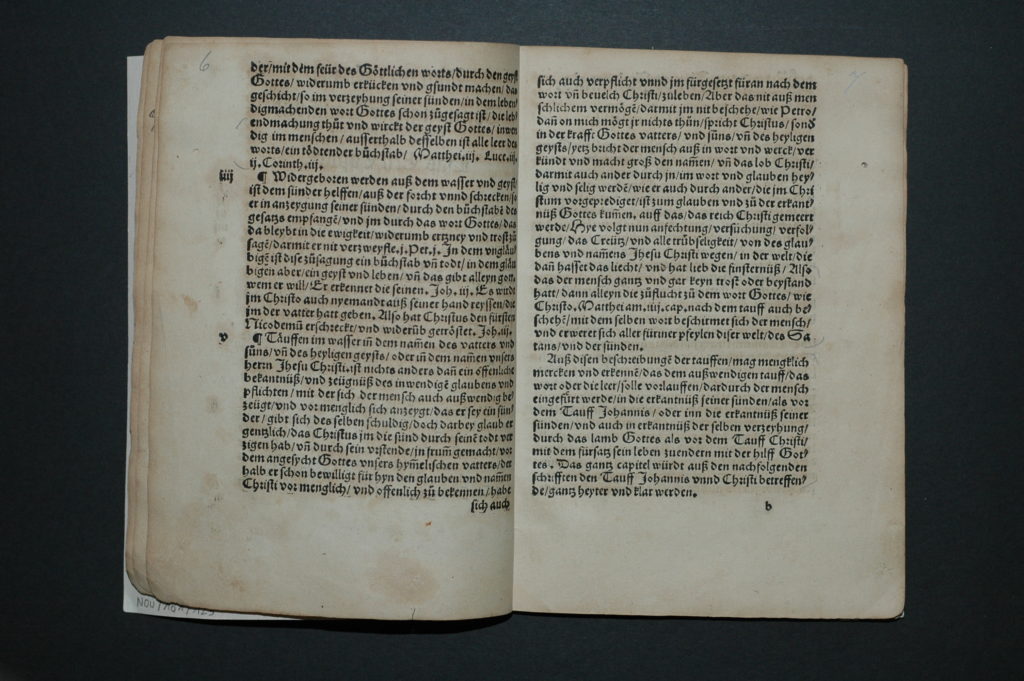 6
der/mit dem feür des Göttlichen worts/durch den geyst
Gottes/ widerumb erkücken vnd gsundt machen/ das
geschicht/so im verzeyhung seiner sünden/in dem leben
digmachenden wort Gottes schon zügesagt ist/die leb
endmachung thüt vnd wirckt der geyst Gottes/inwen
dig im menschen/ ausserthalb desselben ist alle leer des
worts/ein tödtender büchstab/ Matthei.iij. Luce.iij.
ij.Corinth.iij.
iiij
¶ Widergeboren werden auß dem wasser vnd geyst
ist dem sünder helffen/auß der forcht vnnd schrecken/so
er in anzeygung seiner sünden/durch den büchstabē des
gesatzs empfangē/vnd jm durch das wort Gottes/das
da bleybt in die ewigkeit/widerumb ertzney vnd trost zü
sagē/darmit er nit verzweyfle.j.Pet.j. In dem vngläu
bigē ist dise züsagung ein büchstab vn̄ todt/in dem gläu
bigen aber/ein geyst vnd leben/ vn̄ das gibt alleyn gott
wem er will/ Er erkennet die seinen. Joh.iij. Es wirdt
jm Christo auch nyemandt auß seiner hand reyssen/die
jm der vatter hatt geben. Also hat Christus den fürsten
Nicodemū erschreckt/vnd widerūb getröstet. Joh.iij.
v
¶ Täuffen im wasser iñ dem namen des vatters vnd
süns/vn̄ des heyligen geysts/oder iñ dem namē vnsers
herrn Jhesu Christi.ist nichts anders dañ ein öffenliche
bekantnüß/vnd zeügnüß des inwendigē glaubens vnd
pflichten/ mit der sich der mensch auch außwendig be-
zeügt/vnd vor menglich sich anzeygt/das er sey ein sün
der/gibt sich des selben schuldig/doch darbey glaub er
gentzlich/das Christus jm die sünd durch seinē todt ver
zigen hab/vn̄ durch sein vrstende/in frum̄ gemacht/vor
dem angesycht Gottes vnsers hym̄elischen vatters/der
halb er schon bewilligt für hyn den glauben vnd nam̄en
Christi vor menglich/vnd offenlich zü bekennen/habe
sich auch
sich auch verpflicht vnnd jm fürgesetzt füran nach dem
wort vn̄ beuelch Christi/züleben/Aber das nit auß men
schlichem vermögē/darmit jm nit beschehe/wie Petro/
dañ on mich mögt jr nichts thün/spricht Christus/sond̄
in der krafft Gottes vatters/ vnd süns/vn̄ des heyligen
geysts/yetz bricht der mensch auß in wort vnd werck/ver
kündt vnd macht groß den nam̄en/ vn̄ das lob Christi/
darmit auch ander durch jn/im wort vnd glauben hey/
lig vnd selig werdē/wie er auch durch ander/die jm Chri
stum vorgeprediget/ist zum glauben vnd zü der erkant/
nüß Gottes kum̄en. auff das/das reich Christi gemeert
werde/Hye volgt nun anfechtung/versuchung/ verfol/
gung/das Creütz/vnd alle trübseligkeit/von des glau/
bens vnd namens Jhesu Christi wegen/in der welt/die
dañ hasset das liecht/vnd hat lieb die finsternüß/ Also
das der mensch gantz vnd gar keyn trost oder beystand
hatt/dann alleyn die züflucht zü dem wort Gottes/wie
Christo.Matthei am.iiij.cap.nach dem tauff auch be/
schehē/mit dem selben wort beschirmet sich der mensch/
vnd erweret sich aller füriner pfeylen diser welt/des Sa
tans/vnd der sünden.
Auß disen beschreibungē der tauffen/mag mengklich
mercken vnd erkennē/das dem außwendigen tauff/das
wort oder die leer/solle vorlauffen/dardurch der mensch
eingefürt werde/in die erkantnüß seiner sünden/als vor
dem Tauff Johannis/oder inn die erkantnüß seiner
sünden/vnd auch in erkantnüß der selben verzeyhung/
durch das lamb Gottes als vor dem Tauff Christi/
mit dem fürsatz sein leben züendern mit der hilff Got/
tes. Das gantz capitel würdt auß den nachfolgenden
schrifften den Tauff Johannis vnnd Christi betreffen/
de/gantz heyter vnd klar werden.
b